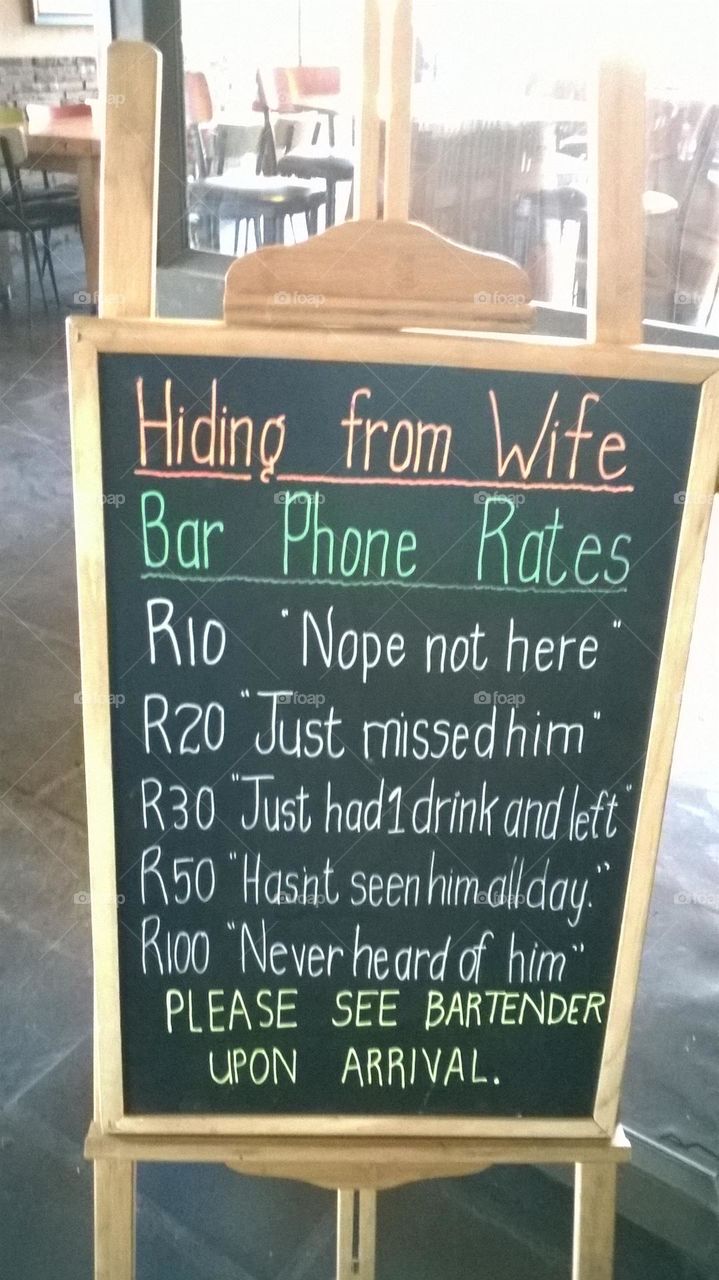 Hiding from Wife
Bar Phone Rates
R10 "Nope not here"
R20 "Just missed him"
R30 "Just had 1 drink and left"
R50 "Hasn't seen him all day."
R100 "Never heard of him"
PLEASE SEE BARTENDER
UPON ARRIVAL.